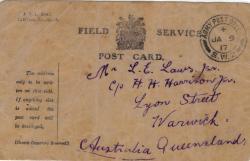 FIELD SERVICE
POST CARD.
The address
only to be
written on this
side. If anything
else is added the
post card will
be destroyed.
ARMY POST OFFICE
JA 9
17
Mr L. E. Laws, Jnr.
C/o H. H. Harrison Jnr.
Lyon Street
Warwick
Australia Queensland